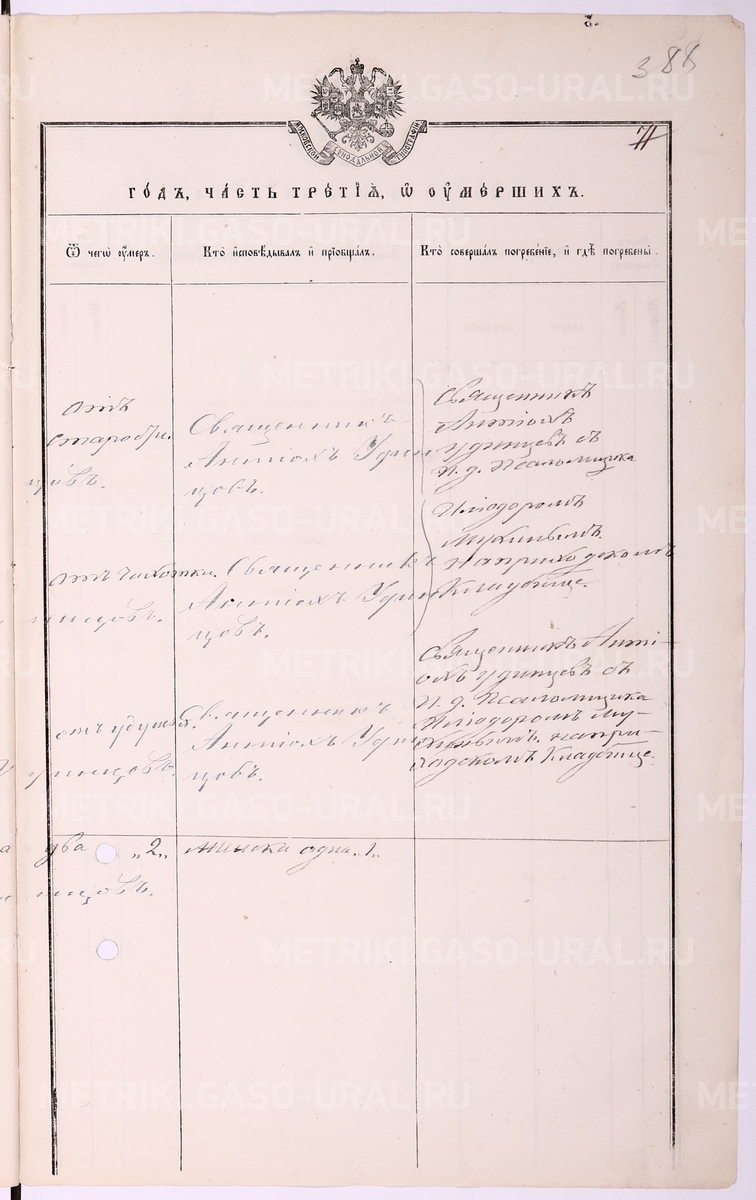 388
71
МОСКОВСКОЙ СѴНОДАЛЬНОЙ ТИПОГРАФІИ
ГОДЪ, ЧАСТЬ ТРЕТІЯ, Ѡ ОУМЕРШИХЪ.
Ѿ чегѡ оумеръ.
Кто исповѣдывалъ и пріобщалъ.
Кто совершалъ погребеніе, и гдѣ погребены.
отъ
старобри-
цовъ.
Священникъ
Антіохъ Удин
цовъ.
Священникъ
Антіохъ
Удинцевъ съ
И. д. Псаломщика
Иліодоромъ
Мукинымъ.
на приходскомъ
кладбище.
отъ чахотки.
нницовъ.
Священникъ
Антіохъ Удин
цовъ.
отъ удушья.
Священникъ
Антіохъ Удин
цовъ.
Священникъ Анті-
охъ Удинцевъ съ
И. д. Псаломщика
Иліодоромъ Му-
кинымъ. на при-
ходскомъ кладбище.
два „2„
женска одна. 1.
нницовъ.
METRIKI.GASO-URAL.RU